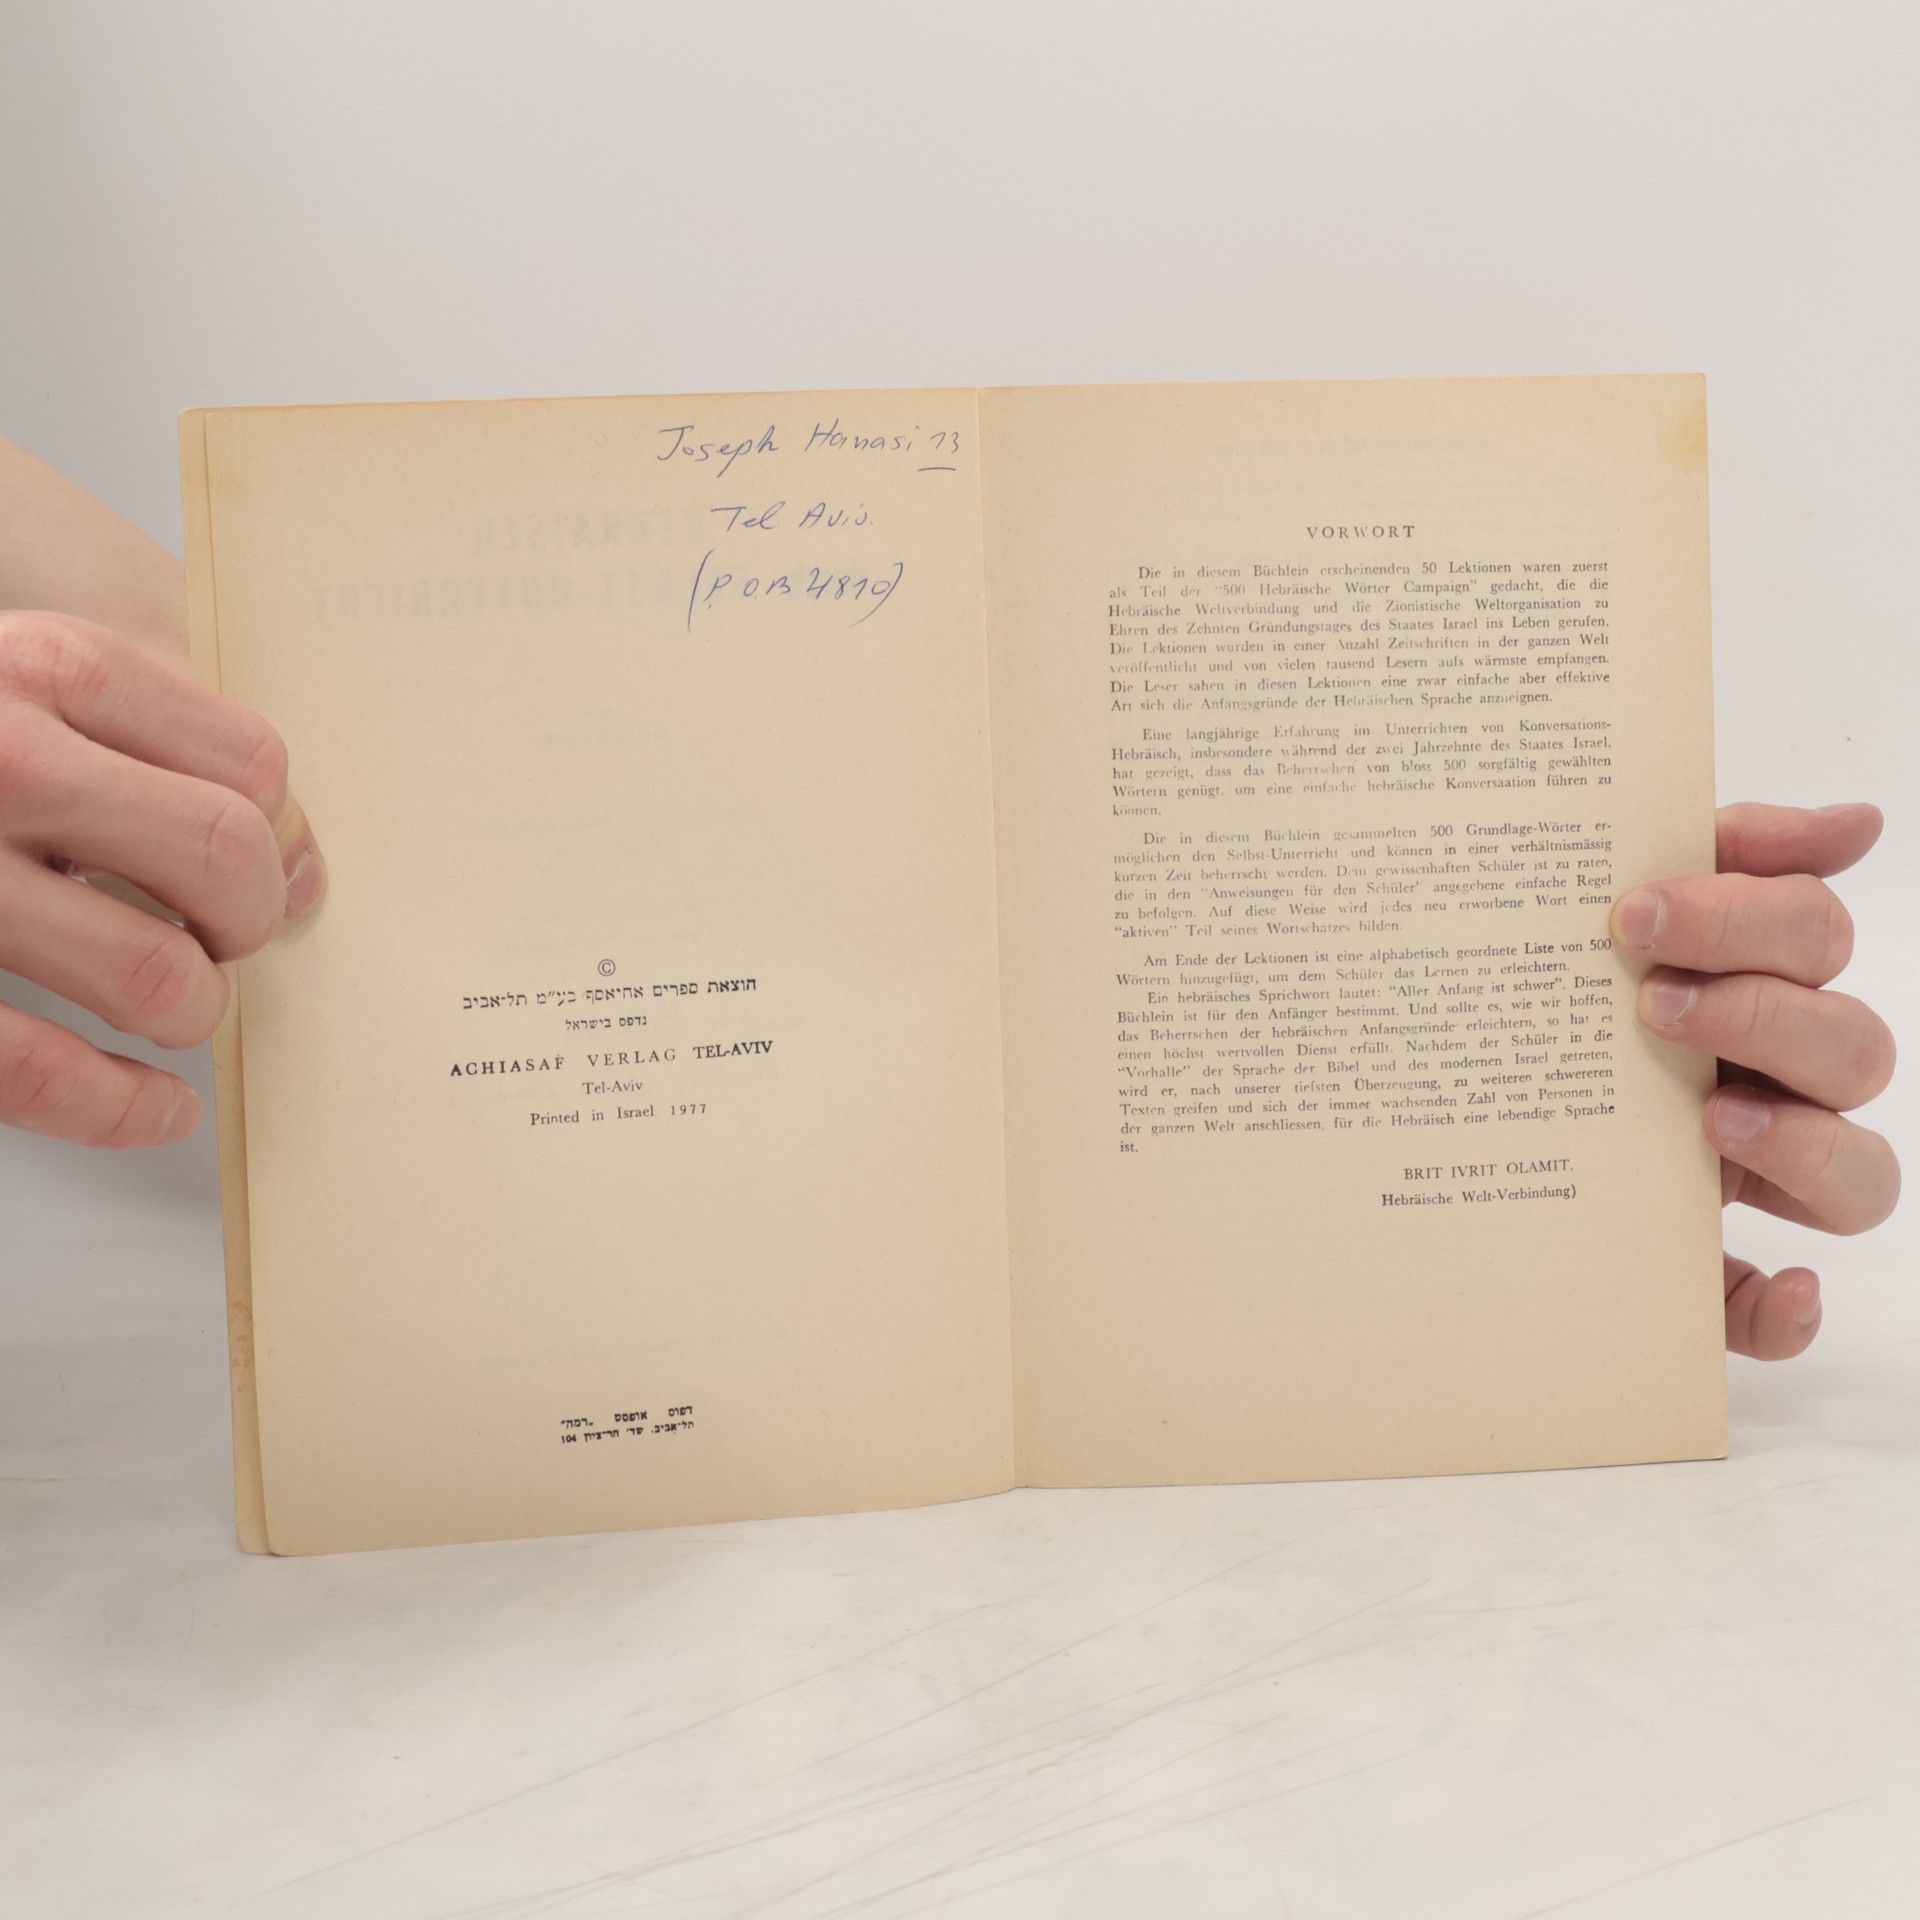 Joseph Hanasi 13
Tel Aviv.
(P.O.B 4810)
©
הוצאת ספרים אחיאסף בע"מ תל-אביב
נדפס בישראל
ACHIASAF VERLAG TEL-AVIV
Tel-Aviv
Printed in Israel 1977
דפוס אופסט „רמה"
תל-אביב, שד' הר-ציון 104
VORWORT
Die in diesem Büchlein erscheinenden 50 Lektionen waren zuerst
als Teil der "500 Hebräische Wörter Campaign" gedacht, die die
Hebräische Weltverbindung und die Zionistische Weltorganisation zu
Ehren des Zehnten Gründungstages des Staates Israel ins Leben gerufen.
Die Lektionen wurden in einer Anzahl Zeitschriften in der ganzen Welt
veröffentlicht und von vielen tausend Lesern aufs wärmste empfangen.
Die Leser sahen in diesen Lektionen eine zwar einfache aber effektive
Art sich die Anfangsgründe der Hebräischen Sprache anzueignen.
Eine langjährige Erfahrung im Unterrichten von Konversations-
Hebräisch, insbesondere während der zwei Jahrzehnte des Staates Israel,
hat gezeigt, dass das Beherrschen von bloss 500 sorgfältig gewählten
Wörtern genügt, um eine einfache hebräische Konversaation führen zu
können.
Die in diesem Büchlein gesammelten 500 Grundlage-Wörter er-
möglichen den Selbst-Unterricht und können in einer verhältnismässig
kurzen Zeit beherrscht werden. Dem gewissenhaften Schüler ist zu raten,
die in den "Anweisungen für den Schüler" angegebene einfache Regel
zu befolgen. Auf diese Weise wird jedes neu erworbene Wort einen
"aktiven" Teil seines Wortschatzes bilden.
Am Ende der Lektionen ist eine alphabetisch geordnete Liste von 500
Wörtern hinzugefügt, um dem Schüler das Lernen zu erleichtern.
Ein hebräisches Sprichwort lautet: "Aller Anfang ist schwer". Dieses
Büchlein ist für den Anfänger bestimmt. Und sollte es, wie wir hoffen,
das Beherrschen der hebräischen Anfangsgründe erleichtern, so hat es
einen höchst wertvollen Dienst erfüllt. Nachdem der Schüler in die
"Vorhalle" der Sprache der Bibel und des modernen Israel getreten,
wird er, nach unserer tiefsten Überzeugung, zu weiteren schwereren
Texten greifen und sich der immer wachsenden Zahl von Personen in
der ganzen Welt anschliessen, für die Hebräisch eine lebendige Sprache
ist.
BRIT IVRIT OLAMIT.
Hebräische Welt-Verbindung)